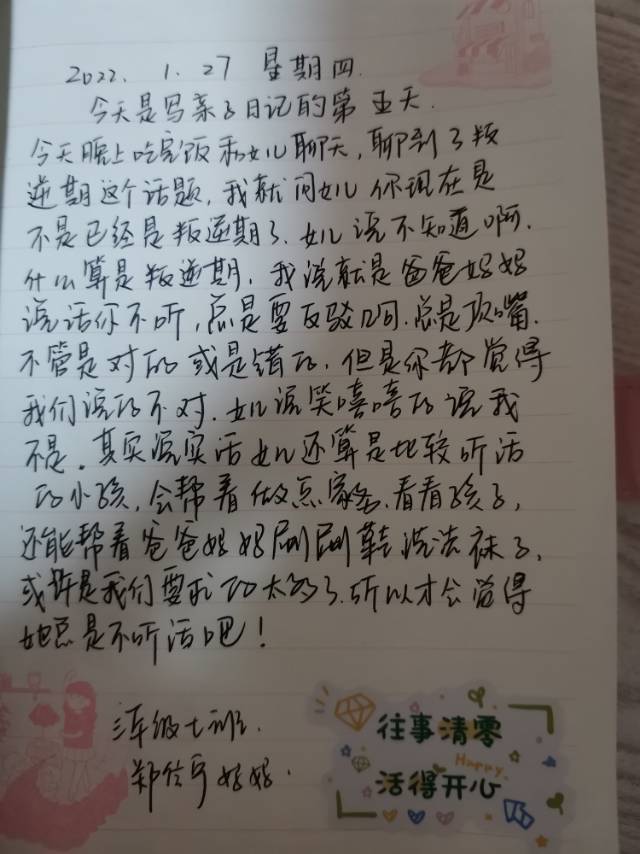 2022. 1. 27 星期四.
今天是写亲子日记的第五天.
今天晚上吃完饭和女儿聊天,聊到了叛
逆期这个话题,我就问女儿你现在是
不是已经是叛逆期了.女儿说不知道啊.
什么算是叛逆期,我说就是爸爸妈妈
说话你不听,总是要反驳几句.总是顶嘴.
不管是对的或是错的,但是你都觉得
我们说的不对.女儿说笑嘻嘻的说我
不是.其实说实话女儿还算是比较听话
的小孩,会帮着做点家务.看看孩子,
还能帮着爸爸妈妈刷刷鞋洗洗袜子,
或许是我们要求的太多了.所以才会觉得
她总是不听话吧!
三年级七班.
郑 妈妈.
往事清零
Happy
活得开心